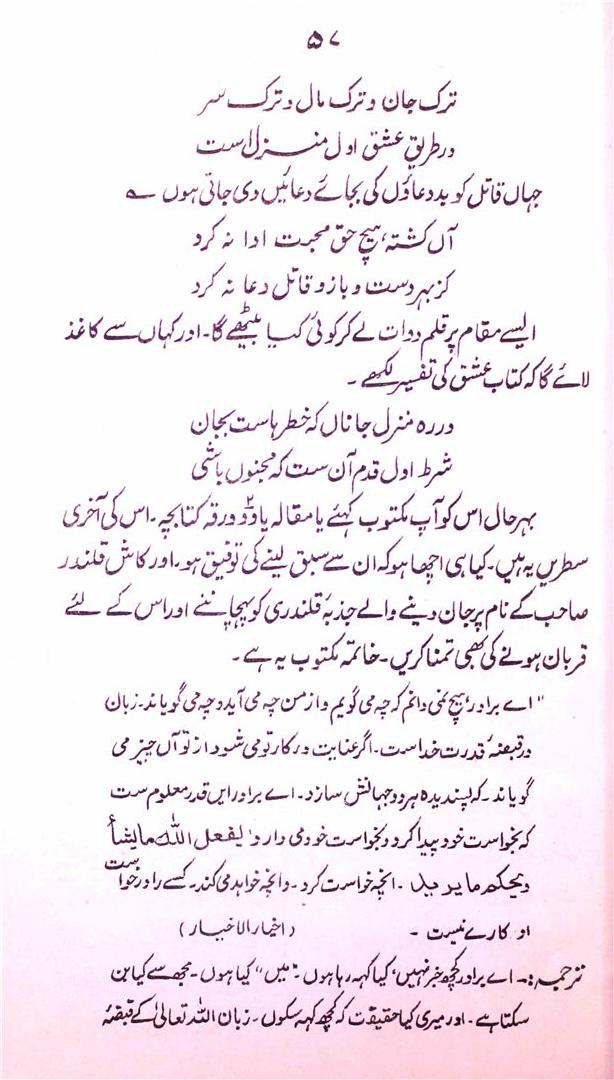 ۵۷
ترک جان و ترک مال و ترک سر
در طریق عشق اول منزل است
جہاں قاتل کو بددعاؤں کی بجائے دعائیں دی جاتی ہوں ؎
آں کشتہ ہیچ حق محبت ادا نہ کرد
کز بہر دست و بازو قاتل دعا نہ کرد
ایسے مقام پر قلم دوات لے کر کوئی کیا بیٹھے گا۔ اور کہاں سے کاغذ
لائے گا کہ کتاب عشق کی تفسیر لکھے۔
در رہ منزل جاناں کہ خطرہاست بجان
شرط اول قدم آن ست کہ مجنوں باشی
بہرحال اس کو آپ مکتوب کہئے یا مقالہ یا دو ۲ ورقہ کتابچہ۔ اس کی آخری
سطریں یہ ہیں۔ کیا ہی اچھا ہو کہ ان سے سبق لینے کی توفیق ہو۔ اور کاش قلندر
صاحب کے نام پر جان دینے والے جذبۂ قلندری کو پہچاننے اور اس کے لئے
قربان ہونے کی بھی تمنا کریں۔ خاتمہ مکتوب یہ ہے۔
"اے برادر، ہیچ نمی دانم کہ چہ می گویم و از من چہ می آید و چہ می گویاند۔ زبان
در قبضۂ قدرت خداست۔ اگر عنایت در کار تو می شود از تو آں چیز می
گویاند۔ کہ پسندیدہ ہر دو جہانش سازد۔ اے برادر ایں قدر معلوم ست
کہ بخواست خود پیدا کرد و بخواست خود می دارد، یفعل اللہ ما یشأ
و یحکم ما یرید۔ انچہ خواست کرد۔ و انچہ خواہد می کند۔ کسے را در خواست
او کارے نیست۔ (اخبار الاخیار)
ترجمہ:۔ اے برادر کچھ خبر نہیں، کیا کہہ رہا ہوں۔ "میں" کیا ہوں۔ مجھ سے کیا بن
سکتا ہے۔ اور میری کیا حقیقت کہ کچھ کہہ سکوں۔ زبان اللہ تعالیٰ کے قبضۂ